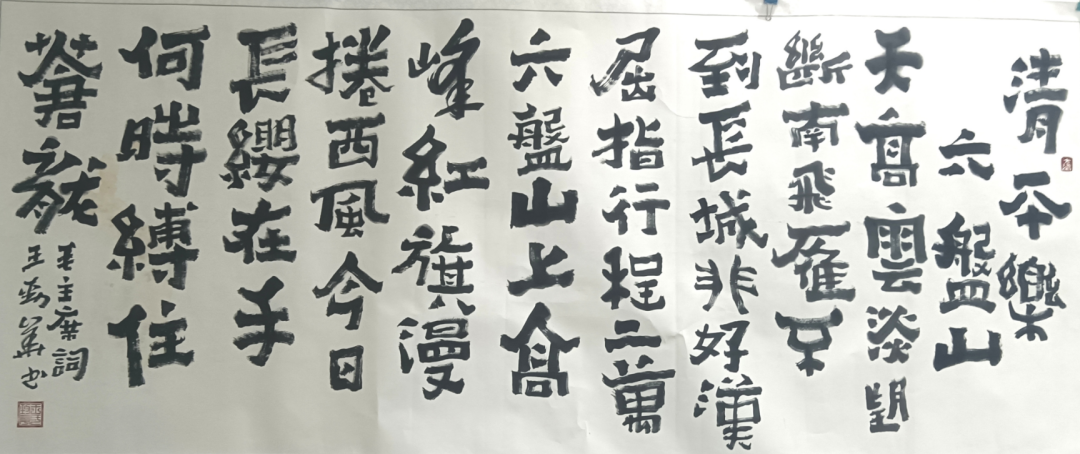 清平樂
六盤山
天高雲淡望
斷南飛雁不
到長城非好漢
屈指行程二萬
六盤山上高
峰紅旗漫
捲西風今日
長纓在手
何時縛住
蒼龍
毛主席詞